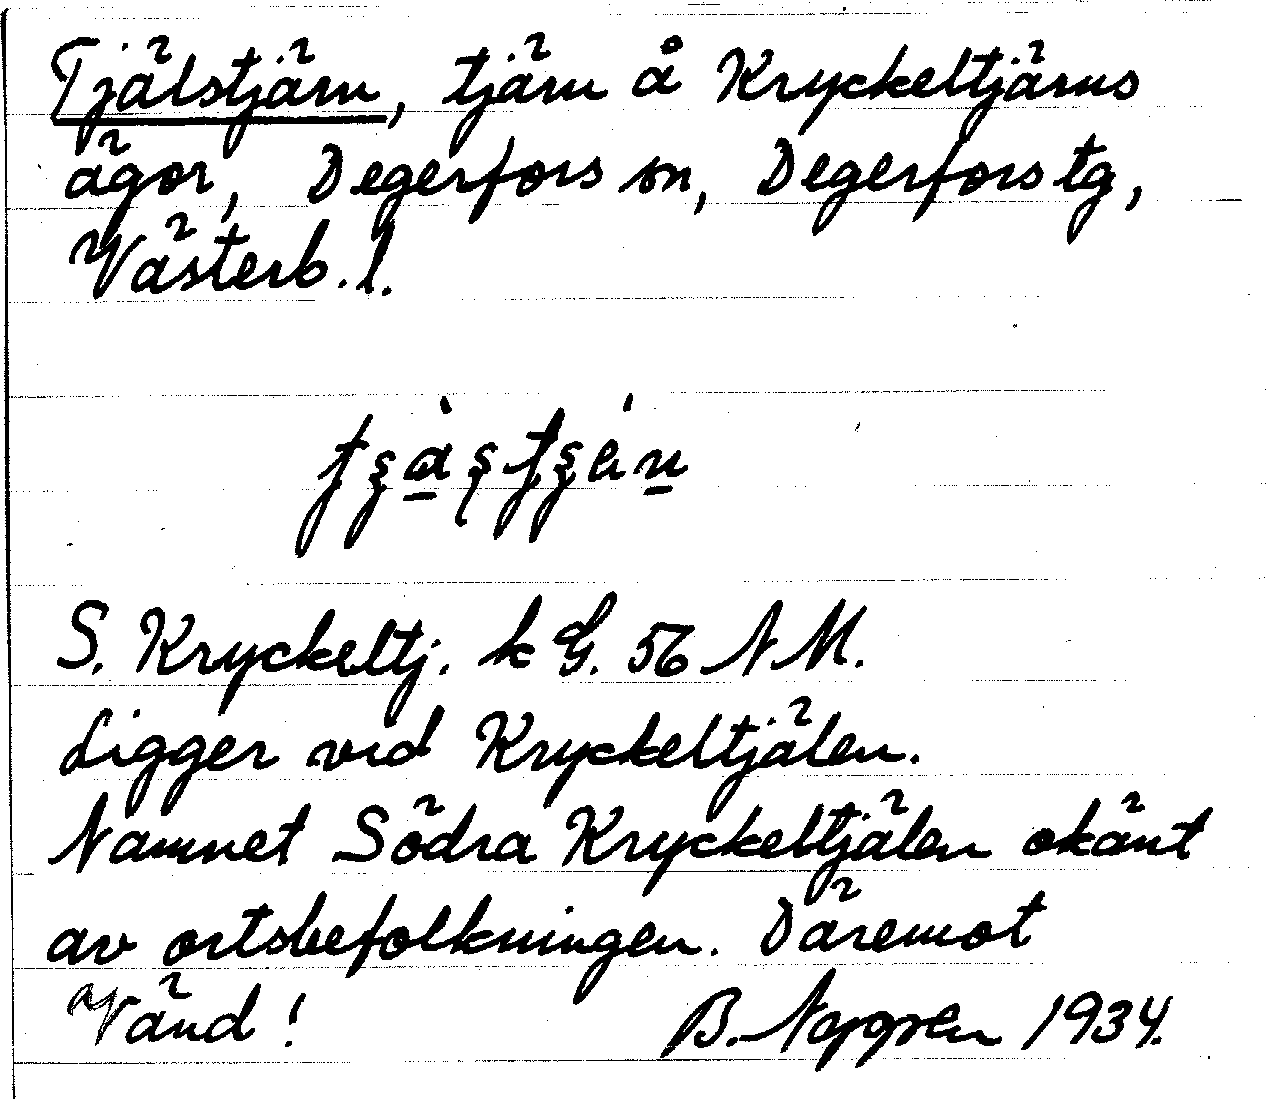 Tjälstjärn, tjärn å Kryckeltjärns
ägor, Degerfors sn, Degerfors tg,
Västerb. l.
S. Kryckeltj. k G. 56 NM.
Ligger vid Kryckeltjälen.
Namnet Södra Kryckeltjälen okänt
av ortsbefolkningen. Däremot
Vänd!
B. Noppen 1934.